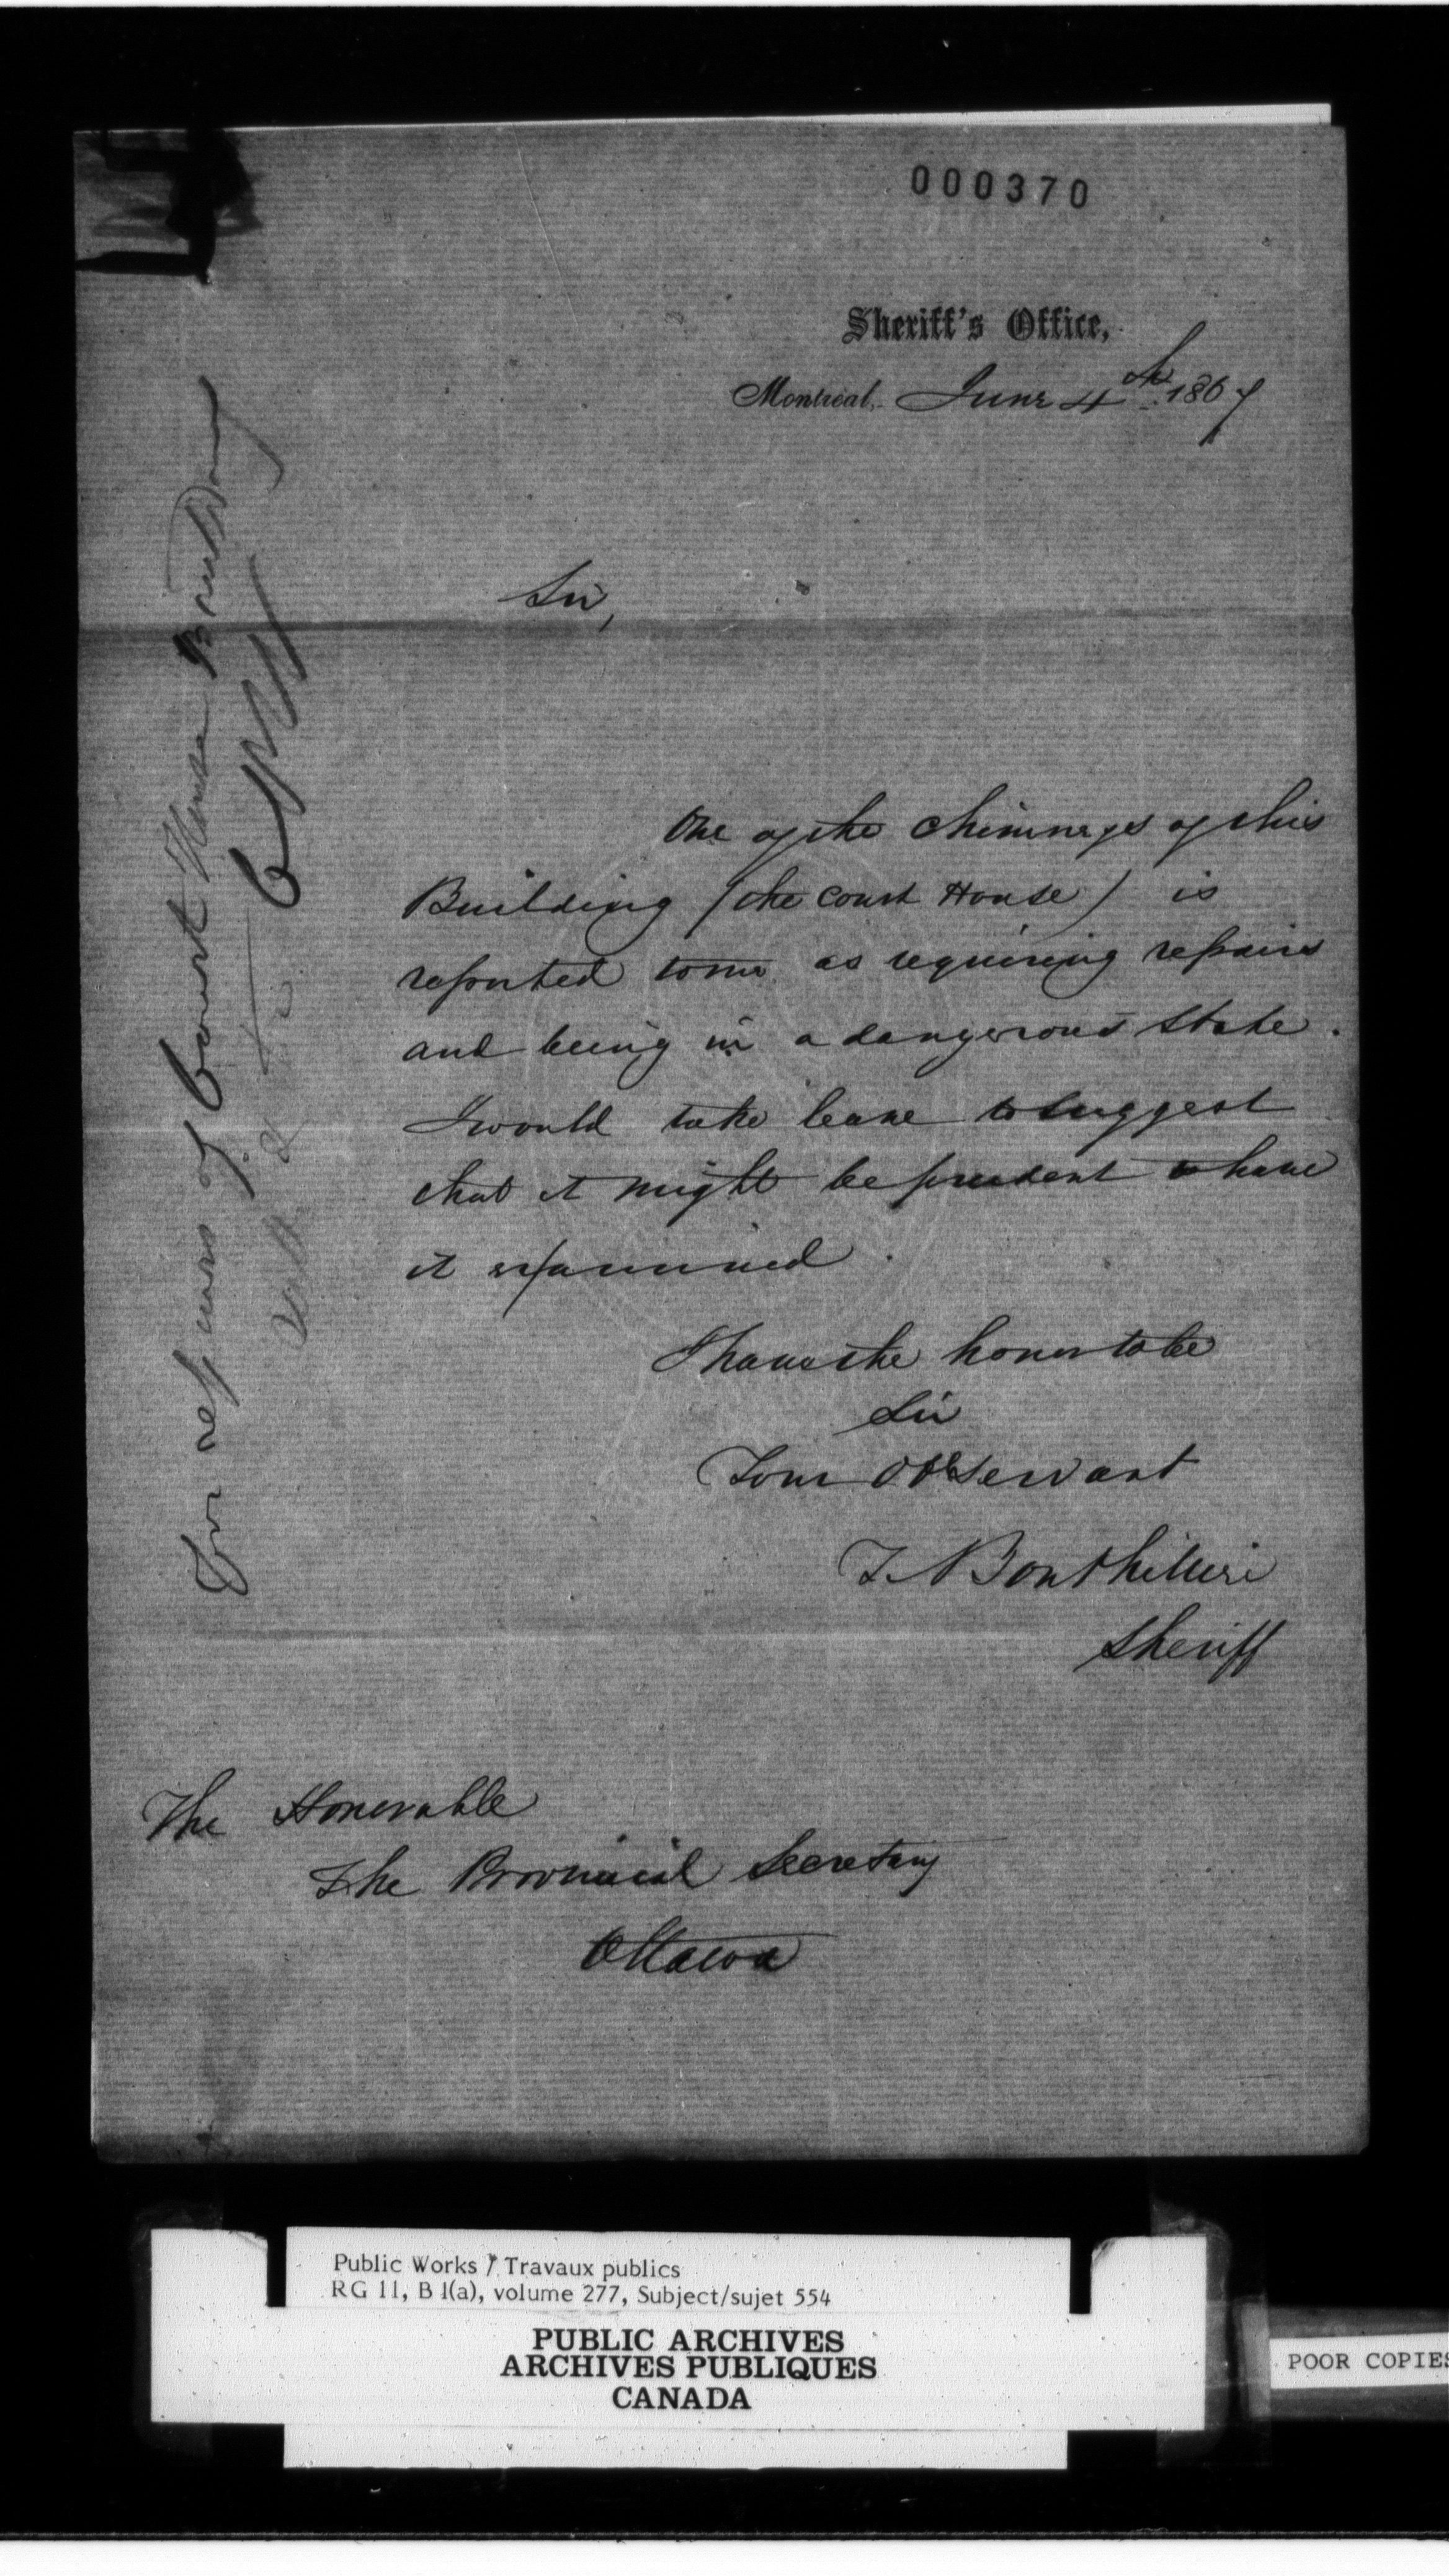 000370
Sheriff's Office,
Montreal, June 4th 1867
Sir,
One of the chimneys of this
Building (the Court House) is
reported to me as requiring repairs
and being in a dangerous state.
I would take leave to suggest
that it might be prudent to have
it examined.
I have the honor to be
Sir
Your Ob Servant
T. Bouthillier
Sheriff
The Honorable
The Provincial Secretary
Ottawa
For repairs of Court House
Public Works / Travaux publics
RG 11, B 1(a), volume 277, Subject/sujet 554
PUBLIC ARCHIVES
ARCHIVES PUBLIQUES
CANADA
POOR COPIES